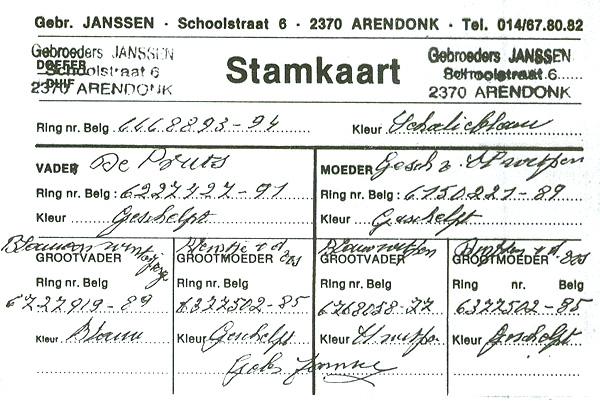 Gebr. JANSSEN - Schoolstraat 6 - 2370 ARENDONK - Tel. 014/67.80.82
Gebroeders JANSSEN
DOFFER
Schoolstraat 6
DUIF
2370 ARENDONK
Stamkaart
Gebroeders JANSSEN
Schoolstraat 6
2370 ARENDONK
Ring nr. Belg 6668893-94 Kleur
VADER De Pruts
Ring nr. Belg : 6227427-91
Kleur Geschelpt
MOEDER Gesch
Ring nr. Belg : 6150221-89
Kleur Geschelpt
Blauwen
GROOTVADER
Ring nr. Belg
6727919-89
Kleur Blauw
GROOTMOEDER
Ring nr. Belg
6322502-85
Kleur Geschelpt
GROOTVADER
Ring nr. Belg
6768058-77
Kleur
GROOTMOEDER
Ring nr. Belg
6322502-85
Kleur Geschelpt
Gebr Janssen